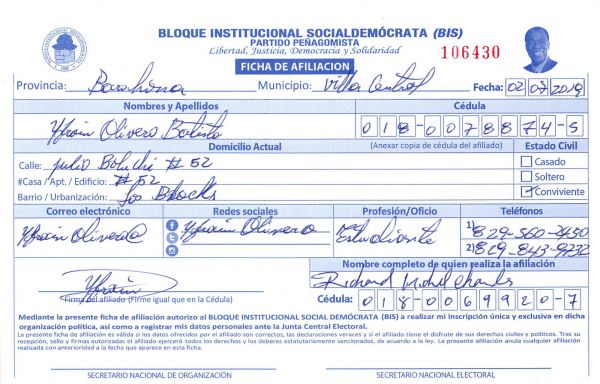 BLOQUE INSTITUCIONAL SOCIALDEMÓCRATA (BIS)
PARTIDO PEÑAGOMISTA
Libertad, Justicia, Democracia y Solidaridad
106430
FICHA DE AFILIACION
Provincia: Barahona Municipio: Villa Central Fecha: 02 07 2019
Nombres y Apellidos Cédula
Yfrain Olivero Batista 018-0078874-5
Domicilio Actual (Anexar copia de cédula del afiliado) Estado Civil
Calle: julio Boluchi # 52 Casado
#Casa / Apt. / Edificio: # 52 Soltero
Barrio / Urbanización: Los Blocks Conviviente
Correo electrónico Redes sociales Profesión/Oficio Teléfonos
Yfrain Olivero@ Yfrain Olivero Estudiante 1) 829-560-2450
2) 829-843-9732
Nombre completo de quien realiza la afiliación
Yfrain Richard Michel
Firma del afiliado (Firme igual que en la Cédula) Cédula: 018-0069920-7
Mediante la presente ficha de afiliación autorizo al BLOQUE INSTITUCIONAL SOCIAL DEMÓCRATA (BIS) a realizar mi inscripción única y exclusiva en dicha
organización política, así como a registrar mis datos personales ante la Junta Central Electoral.
La presente ficha de afiliación es válida si los datos ofrecidos por el afiliado son correctos, las declaraciones veraces y si el afiliado tiene el disfrute de sus derechos civiles y políticos. Tras su
recepción, sello y firmas autorizadas el afiliado ejercerá todos los derechos y los deberes estatutariamente sancionados, de acuerdo a la ley. La presente afiliación anula cualquier afiliación
realizada con anterioridad a la fecha que aparece en esta ficha.
SECRETARIO NACIONAL DE ORGANIZACIÓN SECRETARIO NACIONAL ELECTORAL